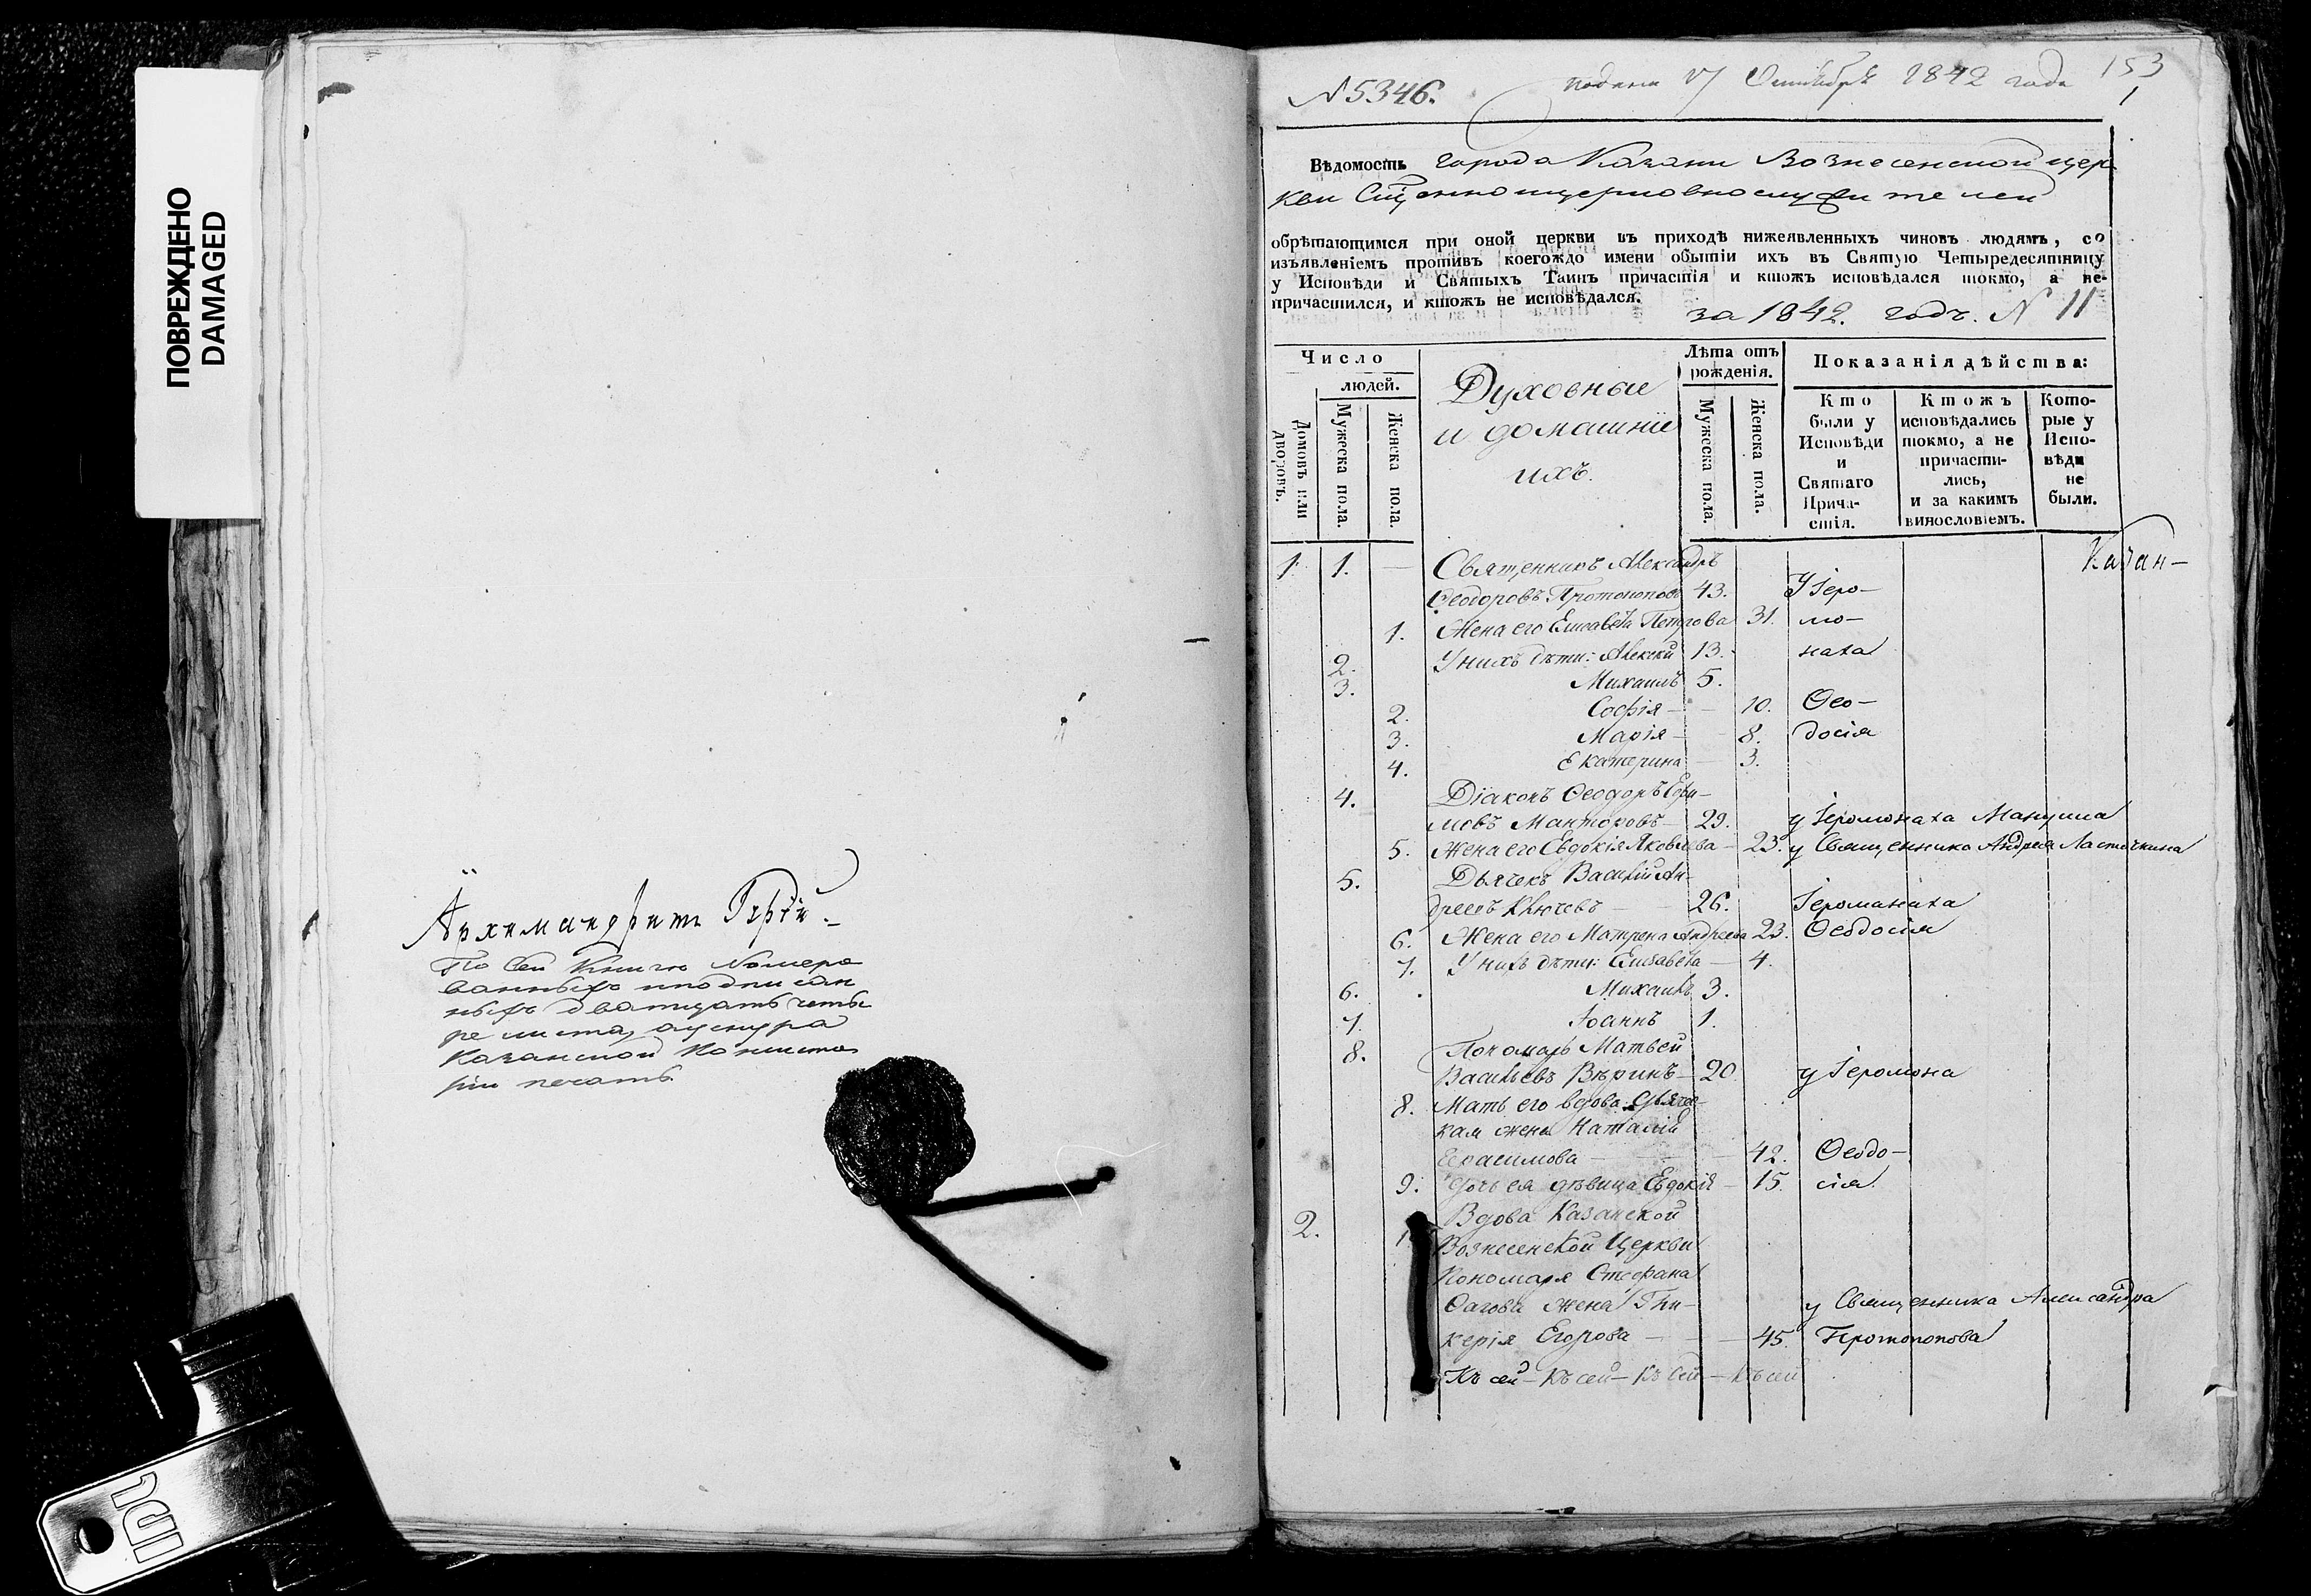 ПОВРЕЖДЕНО
DAMAGED
Архимандритъ
По сей книгѣ номеро
ванныхъ и подписан
ныхъ дватцать четы
ре листа, а у шнура
Казанской Консисто
ріи печать.
№ 5346.
подана 17 Октября 1842 года
153
1
Вѣдомость города Казани Вознесенской цер
кви Сщенноицерковнослужителей
обрѣтающимся при оной церкви въ приходѣ нижеявленныхъ чиновъ людямъ, со
изъявленіемъ противъ коегождо имени объ бытіи ихъ въ Святую Четыредесятницу
у Исповѣди и Святыхъ Таинъ причастія и ктожъ исповѣдался токмо, а не-
причастился, и ктожъ не исповѣдался.
за 1842. годъ. № 11
Число
людей.
Домовъ или
дворовъ.
Мужеска пола.
Женска пола.
Духовные
и домашніе
ихъ.
Лѣта отъ
рожденія.
Мужеска пола.
Женска пола.
Показанія дѣйства:
Кто
были у
Исповѣди
и
Святаго
Прича-
стія.
Ктожъ
исповѣдались
токмо, а не
причасти-
лись,
и за какимъ
винословіемъ.
Кото-
рые у
Испо-
вѣди
не
были.
1 1. — Священникъ Александръ Казан-
Ѳеодоровъ Протопоповъ 43. У Іеро-
1. Жена его Елисавета Петрова 31. мо-
2. У нихъ дѣти: Алексѣй 13. наха
3. Михаилъ 5.
2. Софія — 10. Ѳео-
3. Марія — 8. досія
4. Екатерина — 3.
4. Діаконъ Ѳеодоръ Ефи-
мовъ Мансторовъ — 29. у Іеромонаха
5. Жена его Евдокія Яковлева — 23. у Священника Андрея Ласточкина
5. Дьячекъ Василій Ан-
дреевъ Ключевъ — 26. Іеромонаха
6. Жена его Матрена Андреева 23. Ѳеодосія
7. У нихъ дѣти: Елисавета — 4.
6. Михаилъ 3.
7. Іоаннъ 1.
8. Пономарь Матвей
Васильевъ Вѣринъ — 20. у Іеромона
8. Мать его вдова дьячев-
кая жена Наталія
Герасимова — 42. Ѳеодо-
9. Дочь ея дѣвица Евдокія — 15. сія.
2. 1 Вдова Казанской
Вознесенской Церкви
Пономаря Стефана
жена Гли-
у Священника Александра
керія Егорова — 45. Протопопова
Къ сей — Къ сей — Къ сей — Къ сей